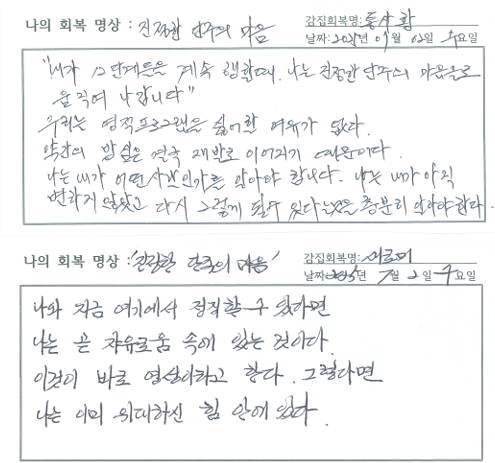 나의 회복 명상 : 진정한 단주의 마음
감집회복명:
날짜: 월 02일 수요일
"내가 12단계를 계속 행할때, 나는 진정한 단주의 마음으로
움직여 나갑니다"
우리는 영적프로그램을 싫어할 여유가 없다.
약간의 방심은 결국 재발로 이어지기 때문이다.
나는 내가 어떤사람인가를 알아야 합니다. 나는 내가 아직
변하지 않았고 다시 그렇게 될수 있다는것을 충분히 알아야한다.
나의 회복 명상 : '진정한 단주의 마음'
감집회복명:
날짜: 년 7월 2일 수요일
나와 지금 여기에서 정직할 수 있다면
나는 곧 자유로움 속에 있는 것이다.
이것이 바로 영성이라고 한다. 그렇다면
나는 이미 위대하신 힘 안에 있다.